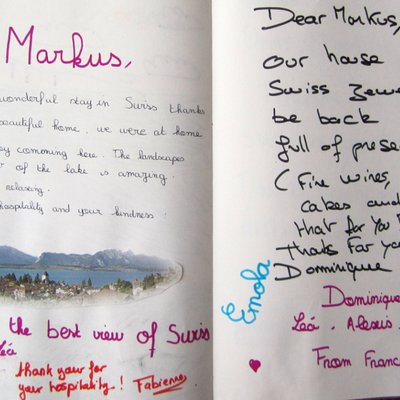 Markus,
wonderful stay in Suiss thanks
beautiful home. we were at home
ey comoning here. The landscapes
of the lake is amazing.
relaxing.
hospitality and your kindness!
the best view of Suriss
Léa
thank your for
your hospitality! Fabienne
Dear Markus,
our house
Swiss
be back
full of prese
( Fine wines,
cakes and
that for you
Thanks For you
Dominique
Enola
Dominique
Léa. Alexis.
From Franc